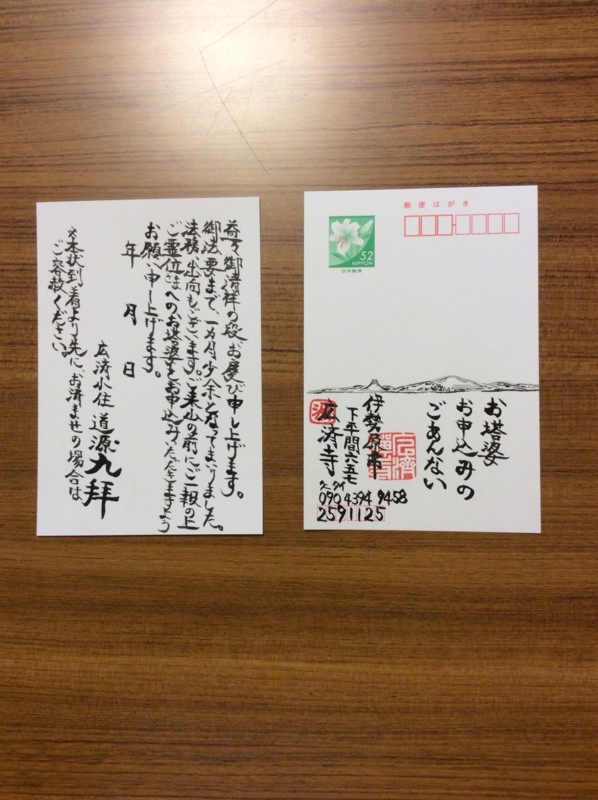 益々御清祥の段 お慶び申し上げます。
御法要まで、一カ月少余となってまいりました。
法積、出向もございます。ご来山の前にご一報の上
ご霊位さまへのお塔婆をお申込みいただきますよう
お願い申し上げます。
年 月 日
広済小住 道源九拝
※本状到着より先に、お済ませの場合は
ご容赦ください。
郵便はがき
52
NIPPON
日本郵便
お塔婆
お申込みの
ごあんない
伊勢原市
下平間六五七
広済寺
090 4394 9458
2591125